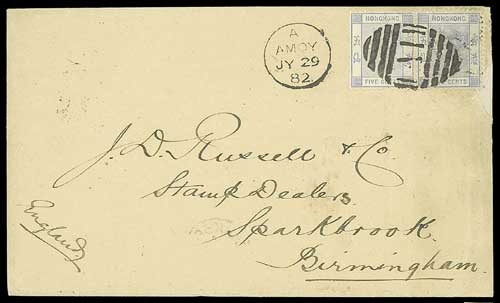 HONGKONG HONGKONG
FIVE CENTS
A
AMOY
JY 29
82
J. D. Russell & Co.
Stamp Dealers
Sparkbrook
Birmingham.
England.